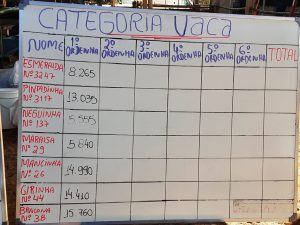 CATEGORIA VACA
NOME 1º ORDENHA 2º ORDENHA 3º ORDENHA 4º ORDENHA 5º ORDENHA 6º ORDENHA TOTAL
ESMERALDA Nº 3247 8.265
PINTADINHA Nº 3117 13.035
NEGUINHA Nº 137 5.555
MARAISA Nº 29 5.840
MANCINHA Nº 26 14.990
GIRINHA Nº 44 14.410
Nº 38 15.760